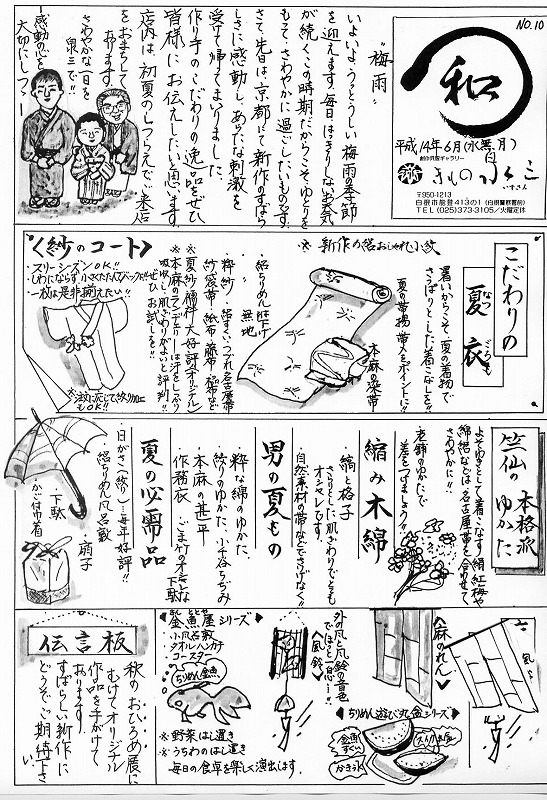 NO.10
和
平成14年6月(水無月)
創作呉服ギャラリー
きもの 泉三
いずさん
〒950-1213
白根市能登413の1(白根警察署前)
TEL(025)373-3105/火曜定休
"梅雨"
いよいよ、うっとうしい梅雨の季節
を迎えます。毎日はっきりしないお天気
が続くこの時期だからこそ、ゆとりを
もって、さわやかに過ごしたいものです。
さて、先日は、京都にて新作のすばら
しさに感動し、あらたな刺激を
受けて帰ってまいりました。
作り手のこだわりの逸品をぜひ
皆様にお伝えしたいと思います。
店内は、初夏のしつらえでご来店
をおまちして
おります。
さわやかな一日を
泉三で!!
―感動の心を
大切に―
こだわりの
夏衣
なつごろも
暑いからこそ、夏の着物で
さっぱりとした着こなしを!!
夏の帯揚、帯〆もポイントに!!
※新作の絽おしゃれ小紋
本麻の染帯
・絽ちりめん 無地
・粋紗・絽すくい、つづれ名古屋帯
紗袋帯・紙布・藤布・櫛布など
※夏紗袴料大好評オリジナル
※本麻のランデブーは汗をしっかり
吸収し、肌ざわりがよいと評判!!
ぜひお試しを!!
〈紗のコート〉
・スリーシーズンOK!!
・しわにならず小さくたたんでバックに
・一枚は是非揃えたい!!
※注文に応じて絞り加工
もOK!!
竺仙の本格派
ゆかた
よそゆきとして着こなす絹紅梅や
綿絽などは名古屋帯を合わせて
さわやかに!!
老舗のゆかたで
差をつけましょう!!
縮み木綿
・縞と格子
さらりとした肌ざわりでとても
オシャレです。
・自然素材の帯などでさりげなく!!
男の夏もの
・粋な綿のゆかた、
絞りのゆかた、小千谷ちぢみ
・本麻の甚平
・作務衣
夏の必需品
・日がさ(絞り)…毎年好評!!
・絽ちりめん風呂敷
・下駄
・扇子
・かご巾着
〈麻ののれん〉
外の風と風鈴の音色
でほっと一息…!!
〈風鈴〉
ちりめん遊び丸金シリーズ
金魚すくい
スイカ
かき氷
金魚屋シリーズ
・小風呂敷
・タオルハンカチ
・コースター
ちりめん金魚
※野菜はし置き
※うちわのはし置き
毎日の食卓を楽しく演出します。
伝言板
秋のおひろめ展に
むけてオリジナル
作品を手がけて
おります。
すばらしい新作に
どうぞご期待下さい